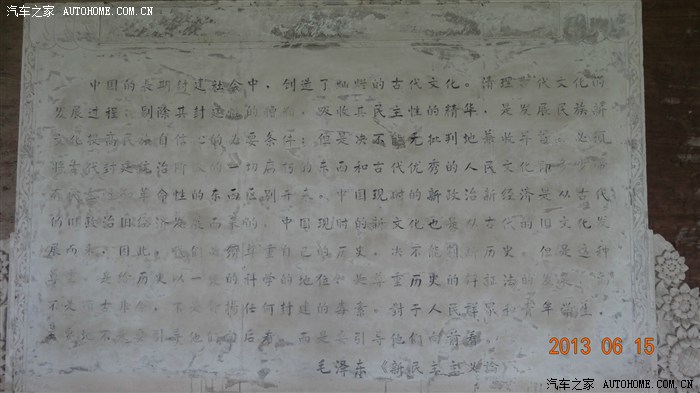 汽车之家 AUTOHOME.COM.CN
中国的长期封建社会中，创造了灿烂的古代文化。清理古代文化的
发展进程，剔除其封建性的糟粕，吸收其民主性的精华，是发展民族新
文化提高民族自信心的必要条件；但是决不能无批判地兼收并蓄。必须
将古代封建统治阶级的一切腐朽的东西和古代优秀的人民文化即
革命性的东西区别开来。中国现时的新政治新经济是从古代
的旧政治旧经济发展而来的，中国现时的新文化也是从古代的旧文化发
展而来，因此，我们必须尊重自己的历史，决不能割断历史。但是这种
尊重，是给历史以一定的科学的地位，是尊重历史的辩证法的发展，
不是颂古非今，不是赞扬任何封建的毒素。对于人民群众和青年学生，
主要地不是要引导他们向后看，而是要引导他们向前看。
毛泽东《新民主主义论》
2013 06 15
汽车之家 AUTOHOME.COM.CN